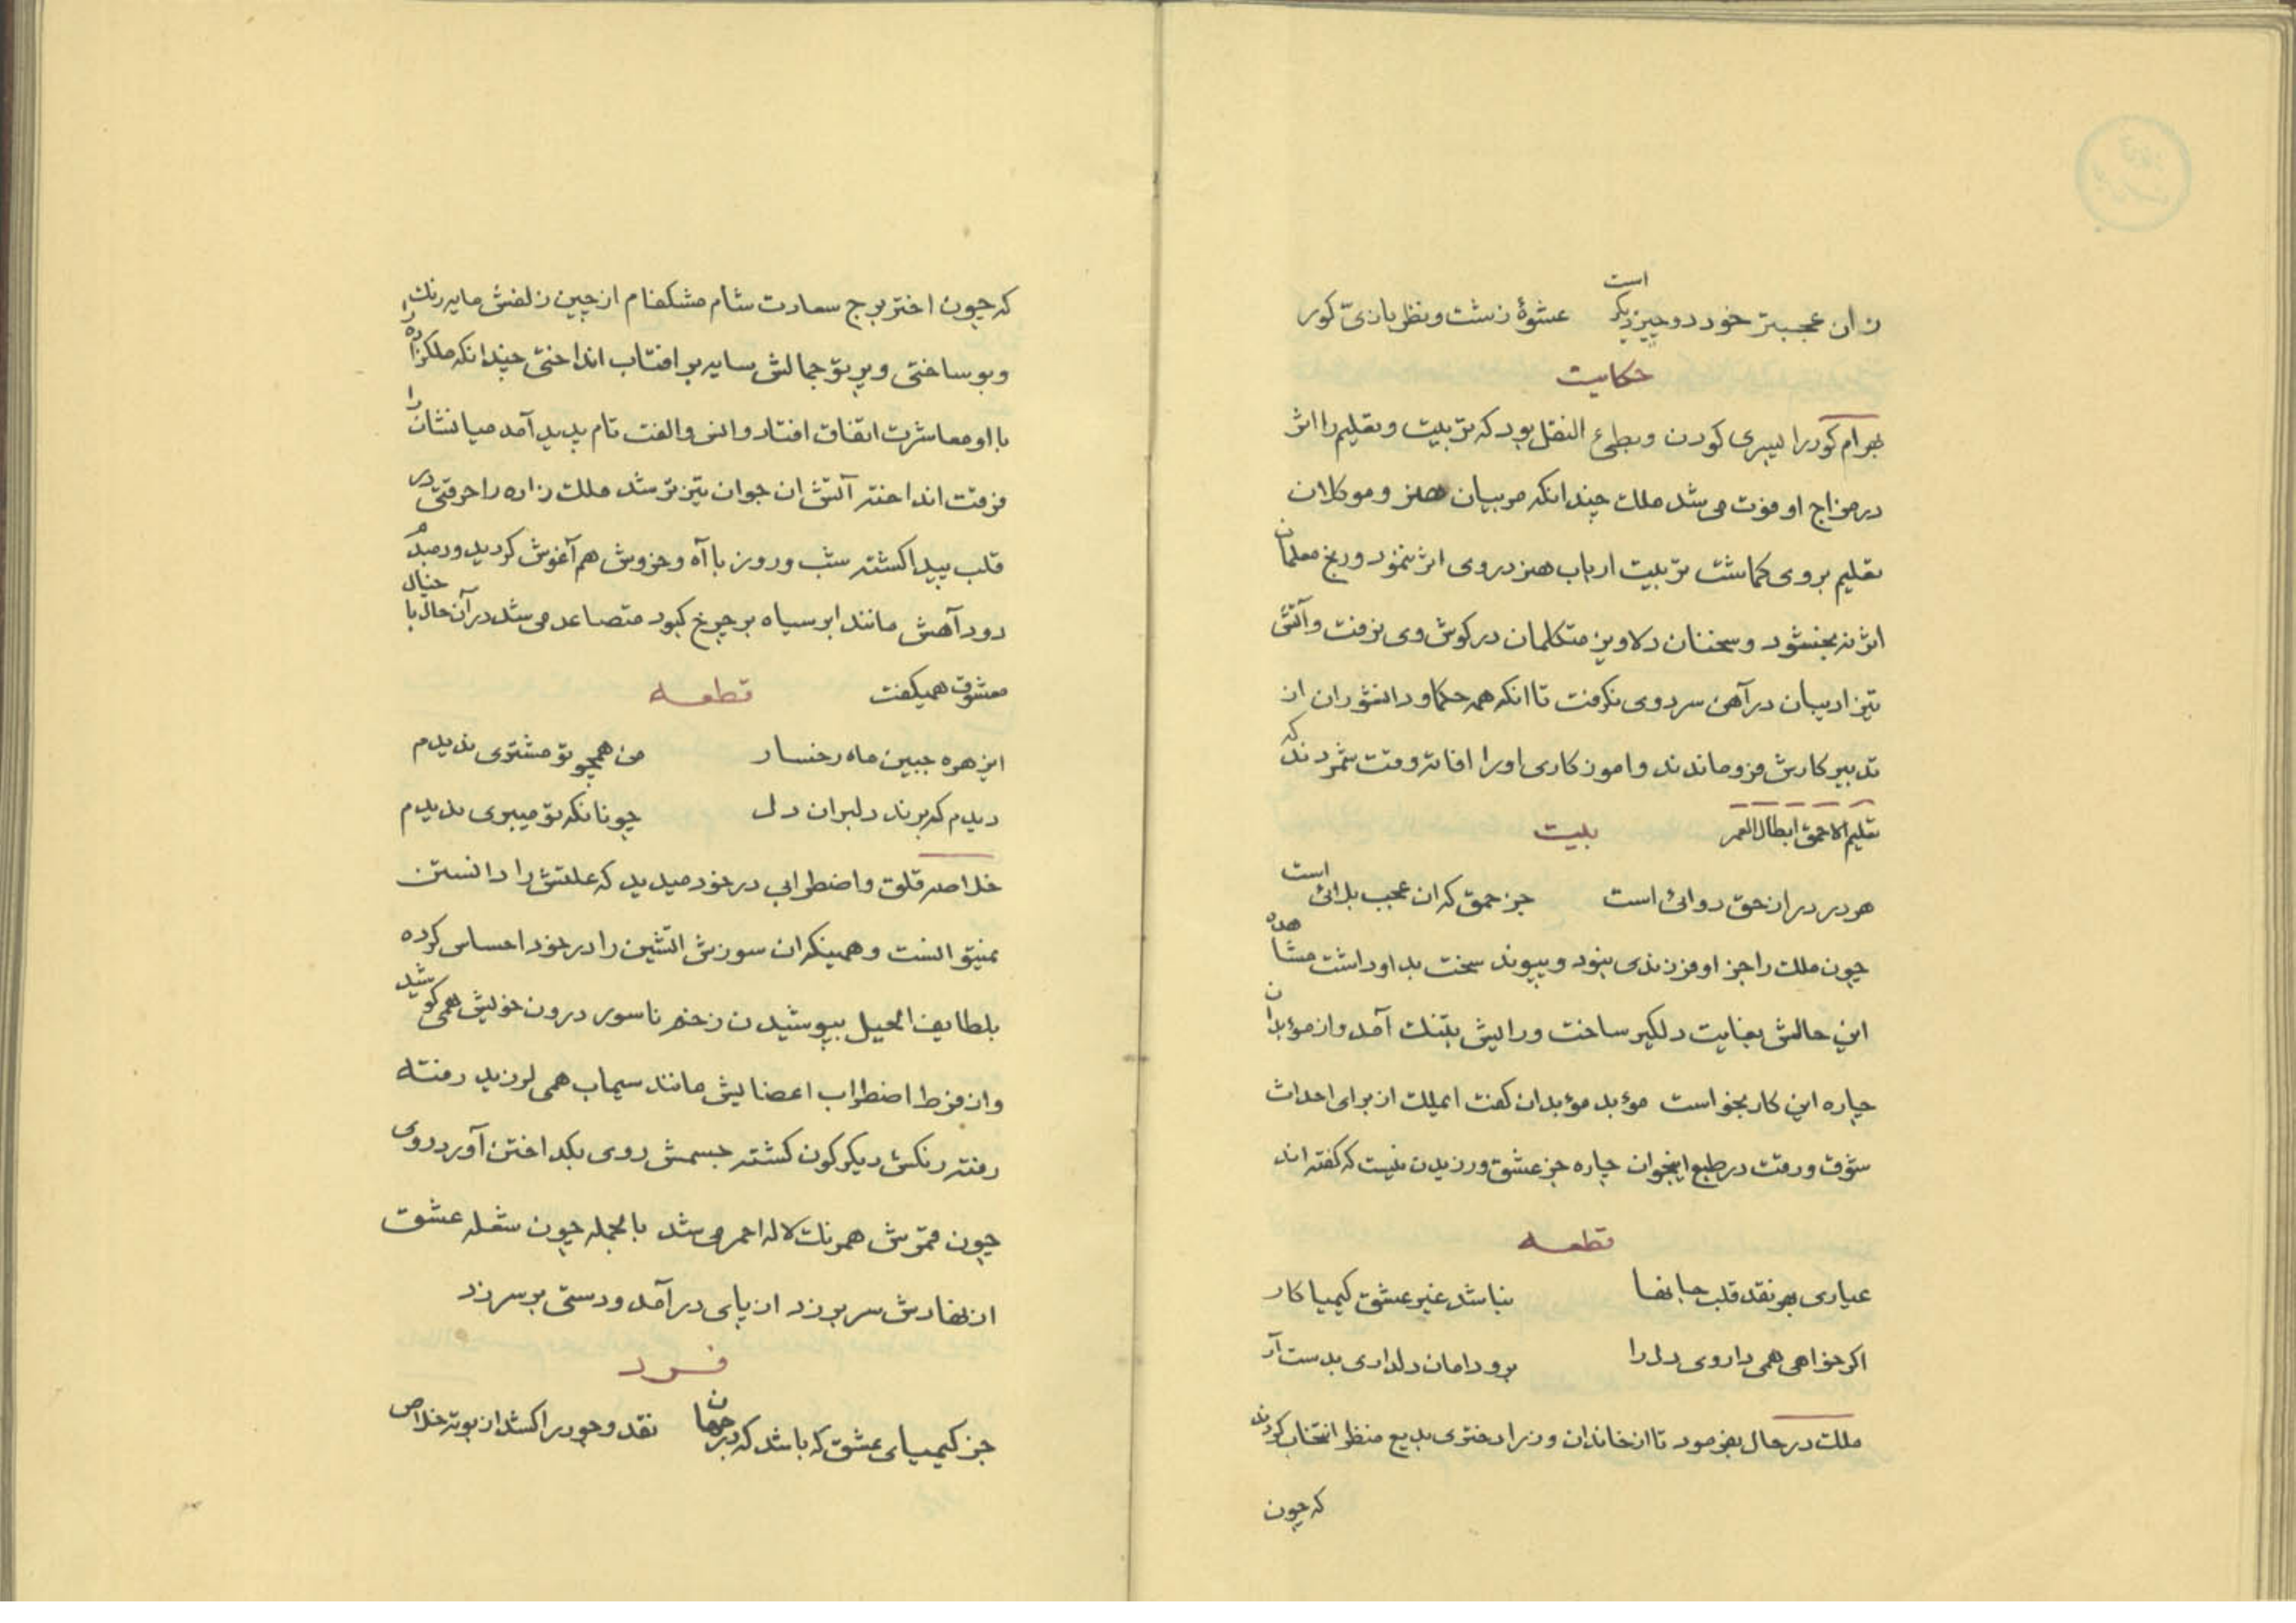 زان عجبتر خود دو چیز دیکر است عشوهٔ زشت و نظربازیّ کور
حکایت
بهرام کور را پسری کودن و بطیء النقل بود که تربیت و تعلیم را اثر
در مزاج او فوت می شد ملک چندانکه مربیان هنر و موکلان
تعلیم بروی کماشت تربیت ارباب هنر دروی اثر ننمود و رنج معلمان
اثر نه بخشود و سخنان دلاویز متکلمان در کوش وی نرفت و آتش
تیز ادیبان در آهن سرد وی نکرفت تا انکه همه حکما و دانشوران از
تدبیر کارش فرو ماندند و اموزکاری او را افاته وقت شمردند که
تعلیم الاحمق ابطال العمر بیت
هر درد را ز حق دوائی است جز حمق که ان عجب بلائی است
چون ملک را جز او فرزندی نبود و پیوند سخت بد او داشت مشاهده
این حالش بغایت دلکیر ساخت و رایش بتنک آمد و از موءبدان
چاره این کار بخواست موءبد موءبدان کفت ایملک از برای احداث
شوق و رقت در طبع اینجوان چاره جز عشق ورزیدن نیست که کفته اند
قطعه
عیاری بهر نقد قلب جانها نباشد غیر عشق کیمیا کار
اکر خواهی همی داروی دل را برو دامان دلداری بدست آر
ملک در حال بفرمود تا از خاندان وزرا دختری بدیع منظر انتخاب کردند
که چون
که چون اختر برج سعادت شام مشکفام از چین زلفش مایه رنک
و بو ساختی و پرتو جمالش سایه بر افتاب انداختی چندانکه ملکزاده را
با او معاشرت اتفاق افتاد و انس و الفت تام پدید آمد میانشان را
فرقت انداختند آتش ان جوان تیزتر شد ملک زاده را حرقتی در
قلب پیدا کشته شب و روز با آه و خروش هم آغوش کردید و هر دم
دود آهش مانند ابر سیاه بر چرخ کبود متصاعد می شد در آن حال با خیال
معشوق همیکفت قطعه
ای زهره جبین ماه رخسار من همچو تو مشتری ندیدم
دیدم که برند دلبران دل چونانکه تو میبری ندیدم
خلاصه قلق و اضطرابی در خود میدید که علتش را دانستن
نمیتوانست و همینکه ان سوزش اتشین را در خود احساس کرده
بلطایف الحیل بپوشیدن زخم ناسور درون خویش همی کوشید
و از فرط اضطراب اعضایش مانند سیماب همی لرزید رفته
رفته رنکش دیکرکون کشته جسمش روی بکداختن آورد روی
چون قمرش همرنک لاله احمر می شد بالجمله چون شعله عشق
از نهادش سر بر زد از پای در آمد و دستی بر سر زد
فرد
جز کیمیای عشق که باشد که در جهان نقد وجود را کشد از بوته خلاص